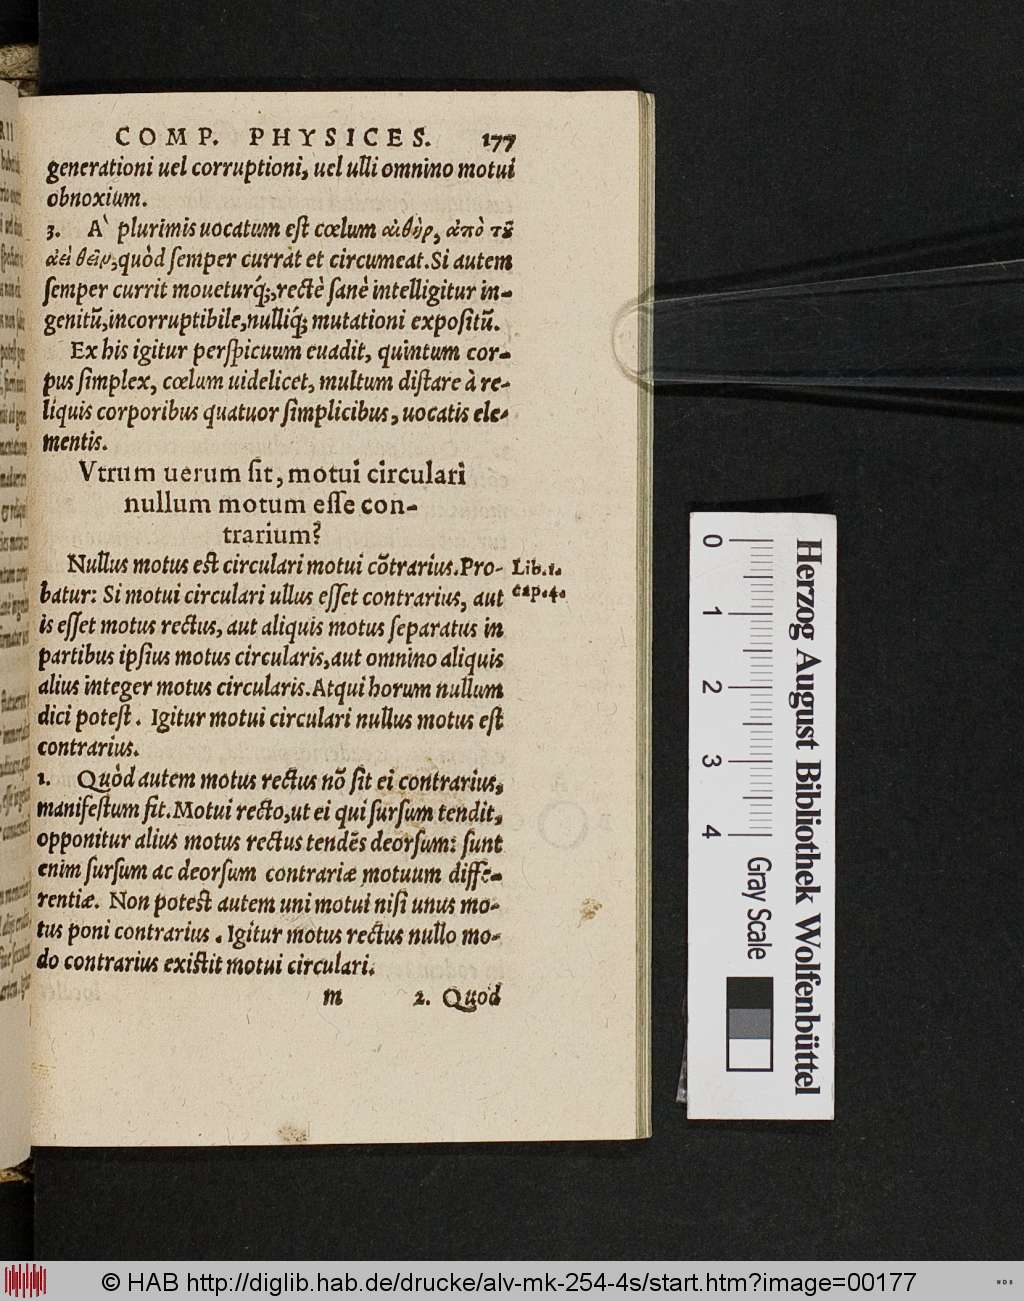 COMP. PHYSICES. 177
generationi uel corruptioni, uel ulli omnino motui
obnoxium.
3. A` plurimis uocatum est cœlum αἰθὴρ, ἀπὸ τȣ͂
ἀεὶ θεῖν, quòd semper currat et circumeat. Si autem
semper currit moueturq́;, rectè sanè intelligitur in-
genitũ, incorruptibile, nulliq́; mutationi expositũ.
Ex his igitur perspicuum euadit, quintum cor-
pus simplex, cœlum uidelicet, multum distare à re-
liquis corporibus quatuor simplicibus, uocatis ele-
mentis.
Vtrum uerum sit, motui circulari
nullum motum esse con-
trarium?
Nullus motus est circulari motui cõtrarius. Pro- Lib. 1.
batur: Si motui circulari ullus esset contrarius, aut cap. 4.
is esset motus rectus, aut aliquis motus separatus in
partibus ipsius motus circularis, aut omnino aliquis
alius integer motus circularis. Atqui horum nullum
dici potest. Igitur motui circulari nullus motus est
contrarius.
1. Quòd autem motus rectus nõ sit ei contrarius,
manifestum sit. Motui recto, ut ei qui sursum tendit,
opponitur alius motus rectus tendẽs deorsum: sunt
enim sursum ac deorsum contrariæ motuum diffe-
rentiæ. Non potest autem uni motui nisi unus mo-
tus poni contrarius. Igitur motus rectus nullo mo-
do contrarius existit motui circulari.
m 2. Quod
0 1 2 3 4 Gray Scale
Herzog August Bibliothek Wolfenbüttel
© HAB http://diglib.hab.de/drucke/alv-mk-254-4s/start.htm?image=00177